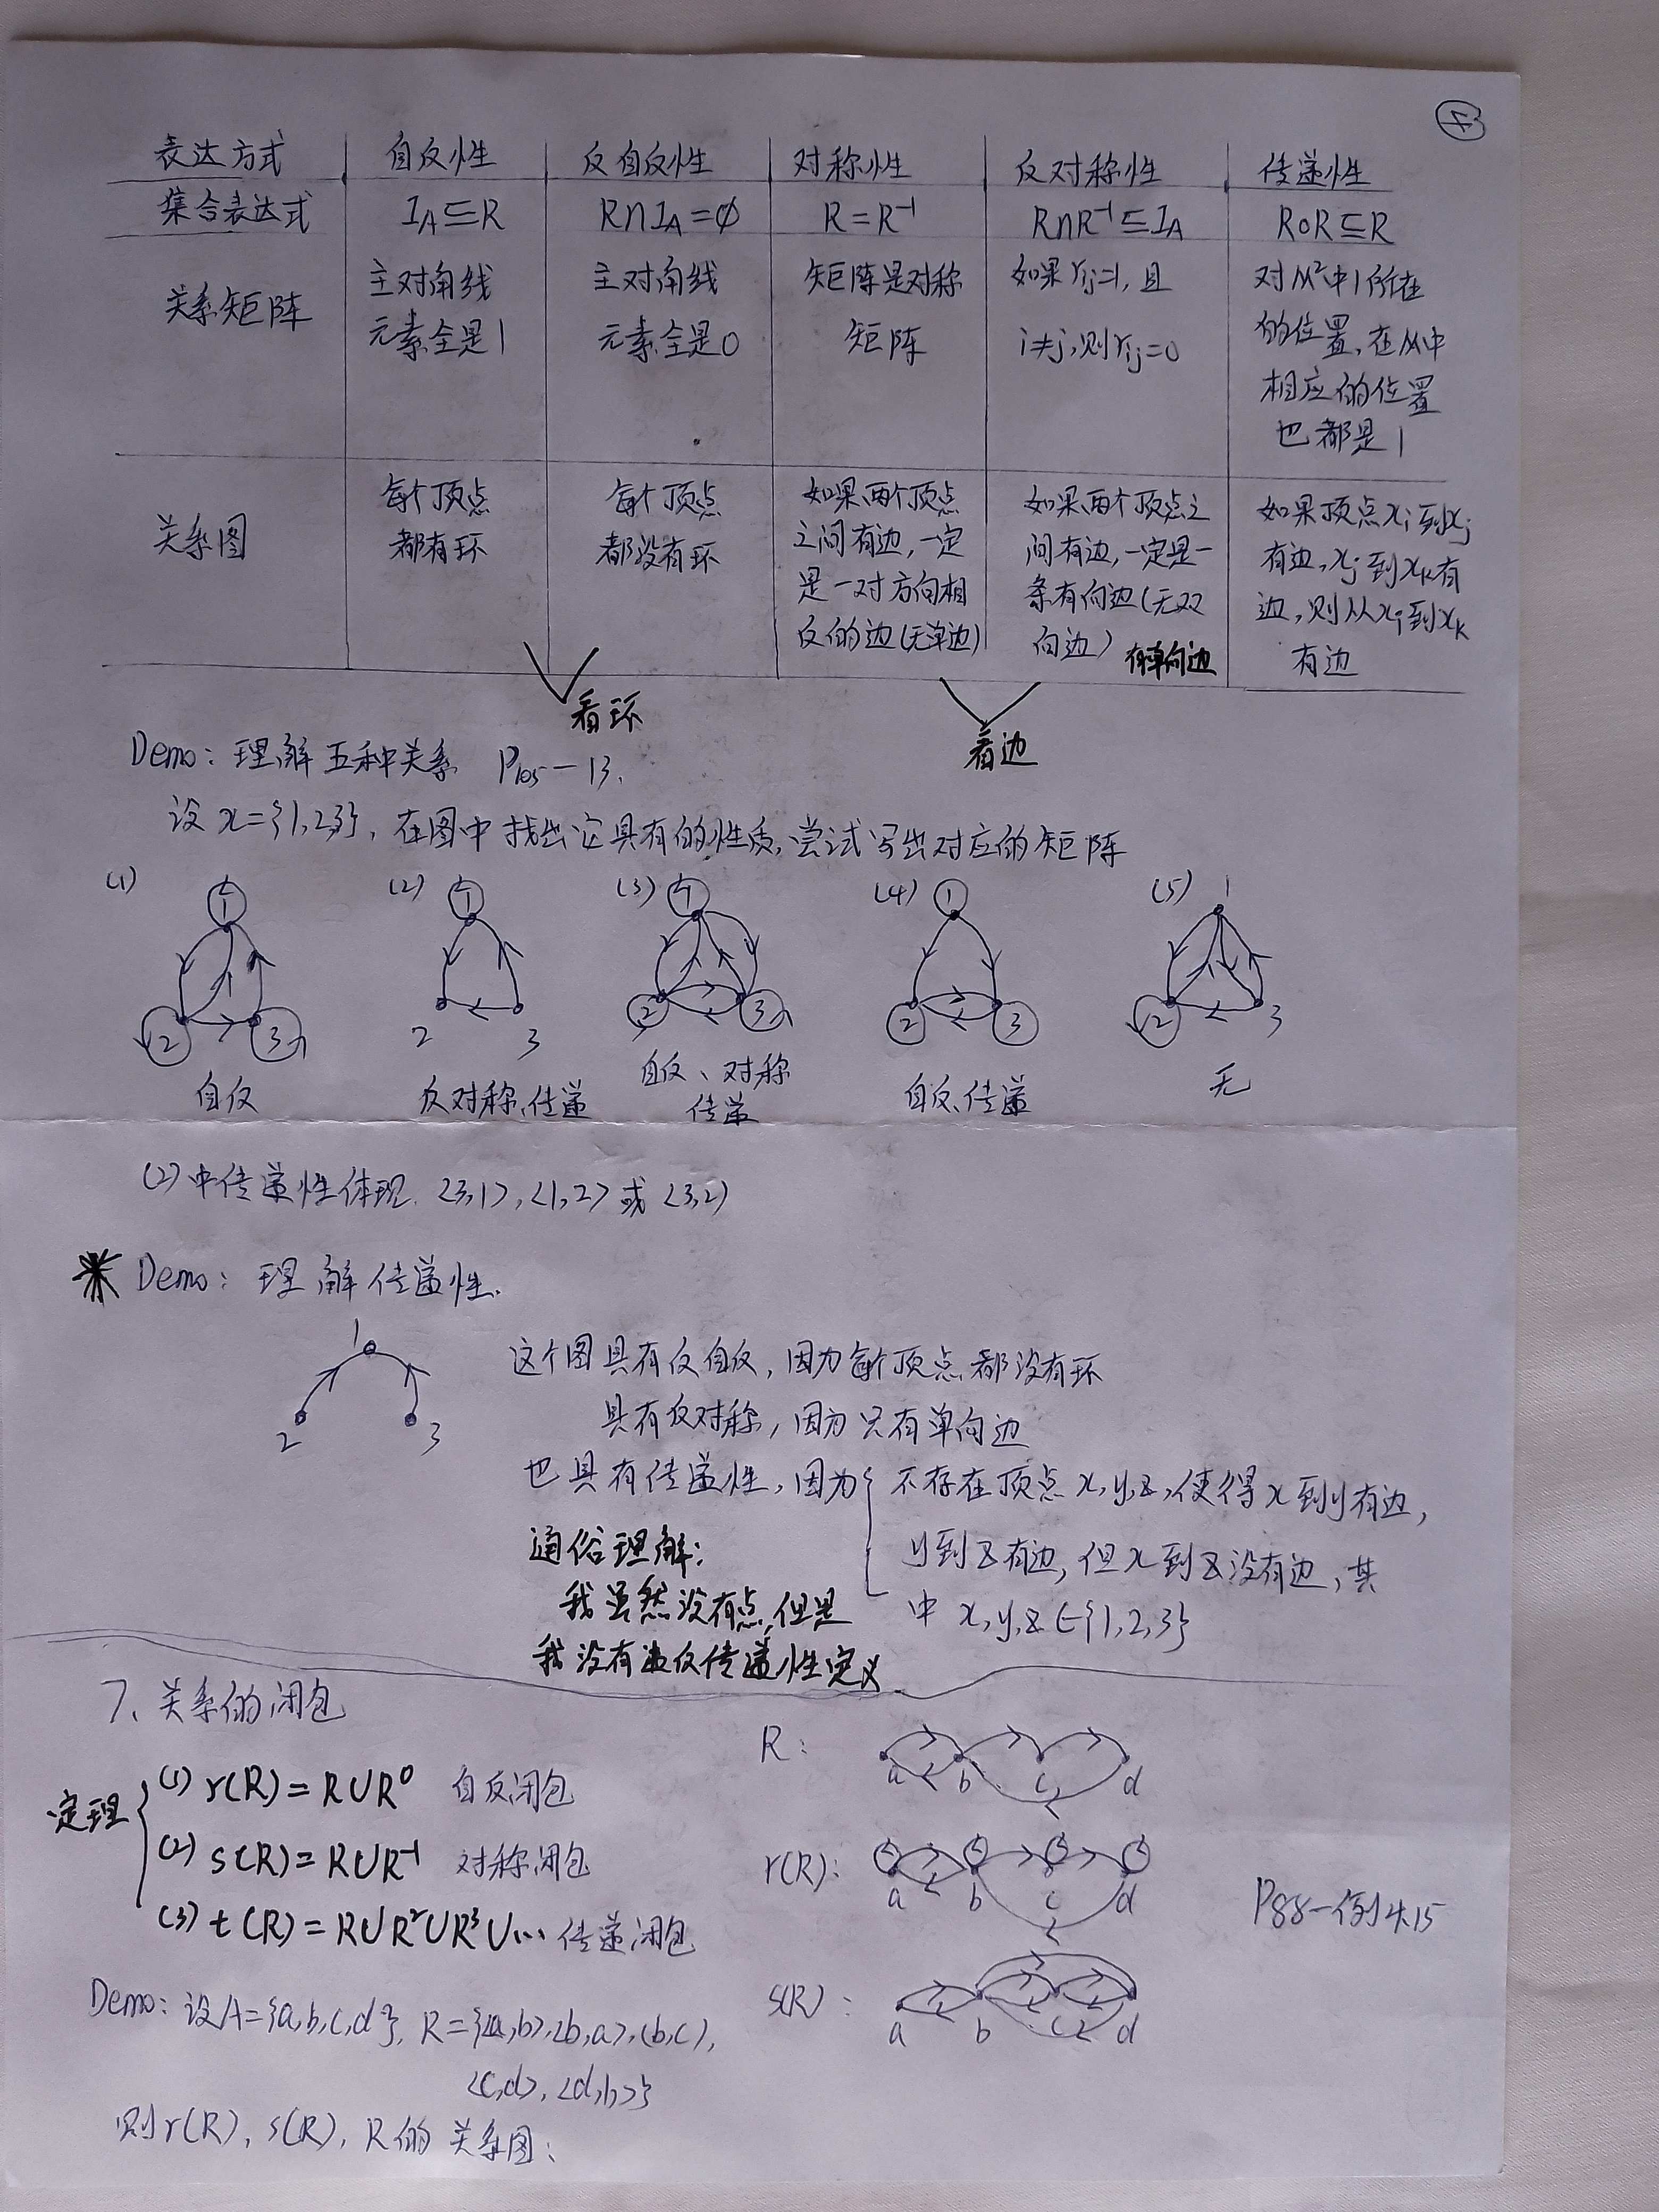 ④
表达方式 自反性 反自反性 对称性 反对称性 传递性
集合表达式 I_A⊆R R∩I_A=∅ R=R⁻¹ R∩R⁻¹⊆I_A R∘R⊆R
关系矩阵
主对角线
元素全是1
主对角线
元素全是0
矩阵是对称
矩阵
如果r_ij=1,且
i≠j,则r_ij=0
对M²中1所在
的位置,在M中
相应的位置
也都是1
关系图
每个顶点
都有环
每个顶点
都没有环
如果两个顶点
之间有边,一定
是一对方向相
反的边(无单边)
如果两个顶点之
间有边,一定是一
条有向边(无双
向边) 有单向边
如果顶点x_i到x_j
有边,x_j到x_k有
边,则从x_i到x_k
有边
看环
看边
Demo:理解五种关系 P₁₀₅—13.
设x={1,2,3},在图中找出它具有的性质,尝试写出对应的矩阵
(1) 1 2 3 自反
(2) 1 2 3 反对称、传递
(3) 1 2 3 自反、对称
传递
(4) 1 2 3 自反、传递
(5) 1 2 3 无
(2)中传递性体现.<3,1>,<1,2>或<3,2>
Demo:理解传递性.
1
2 3
这个图具有反自反,因为每个顶点都没有环
具有反对称,因为只有单向边
也具有传递性,因为{不存在顶点x,y,z,使得x到y有边,
y到z有边,但x到z没有边,其
中x,y,z∈{1,2,3}
通俗理解:
我虽然没有点,但是
我没有违反传递性定义
7、关系的闭包
定理
(1) r(R)=R∪R⁰ 自反闭包
(2) s(R)=R∪R⁻¹ 对称闭包
(3) t(R)=R∪R²∪R³∪… 传递闭包
Demo:设A={a,b,c,d},R={<a,b>,<b,a>,<b,c>,
<c,d>,<d,b>}
则r(R),s(R),R的关系图:
R: a b c d
r(R): a b c d
s(R): a b c d
P88—例4.15